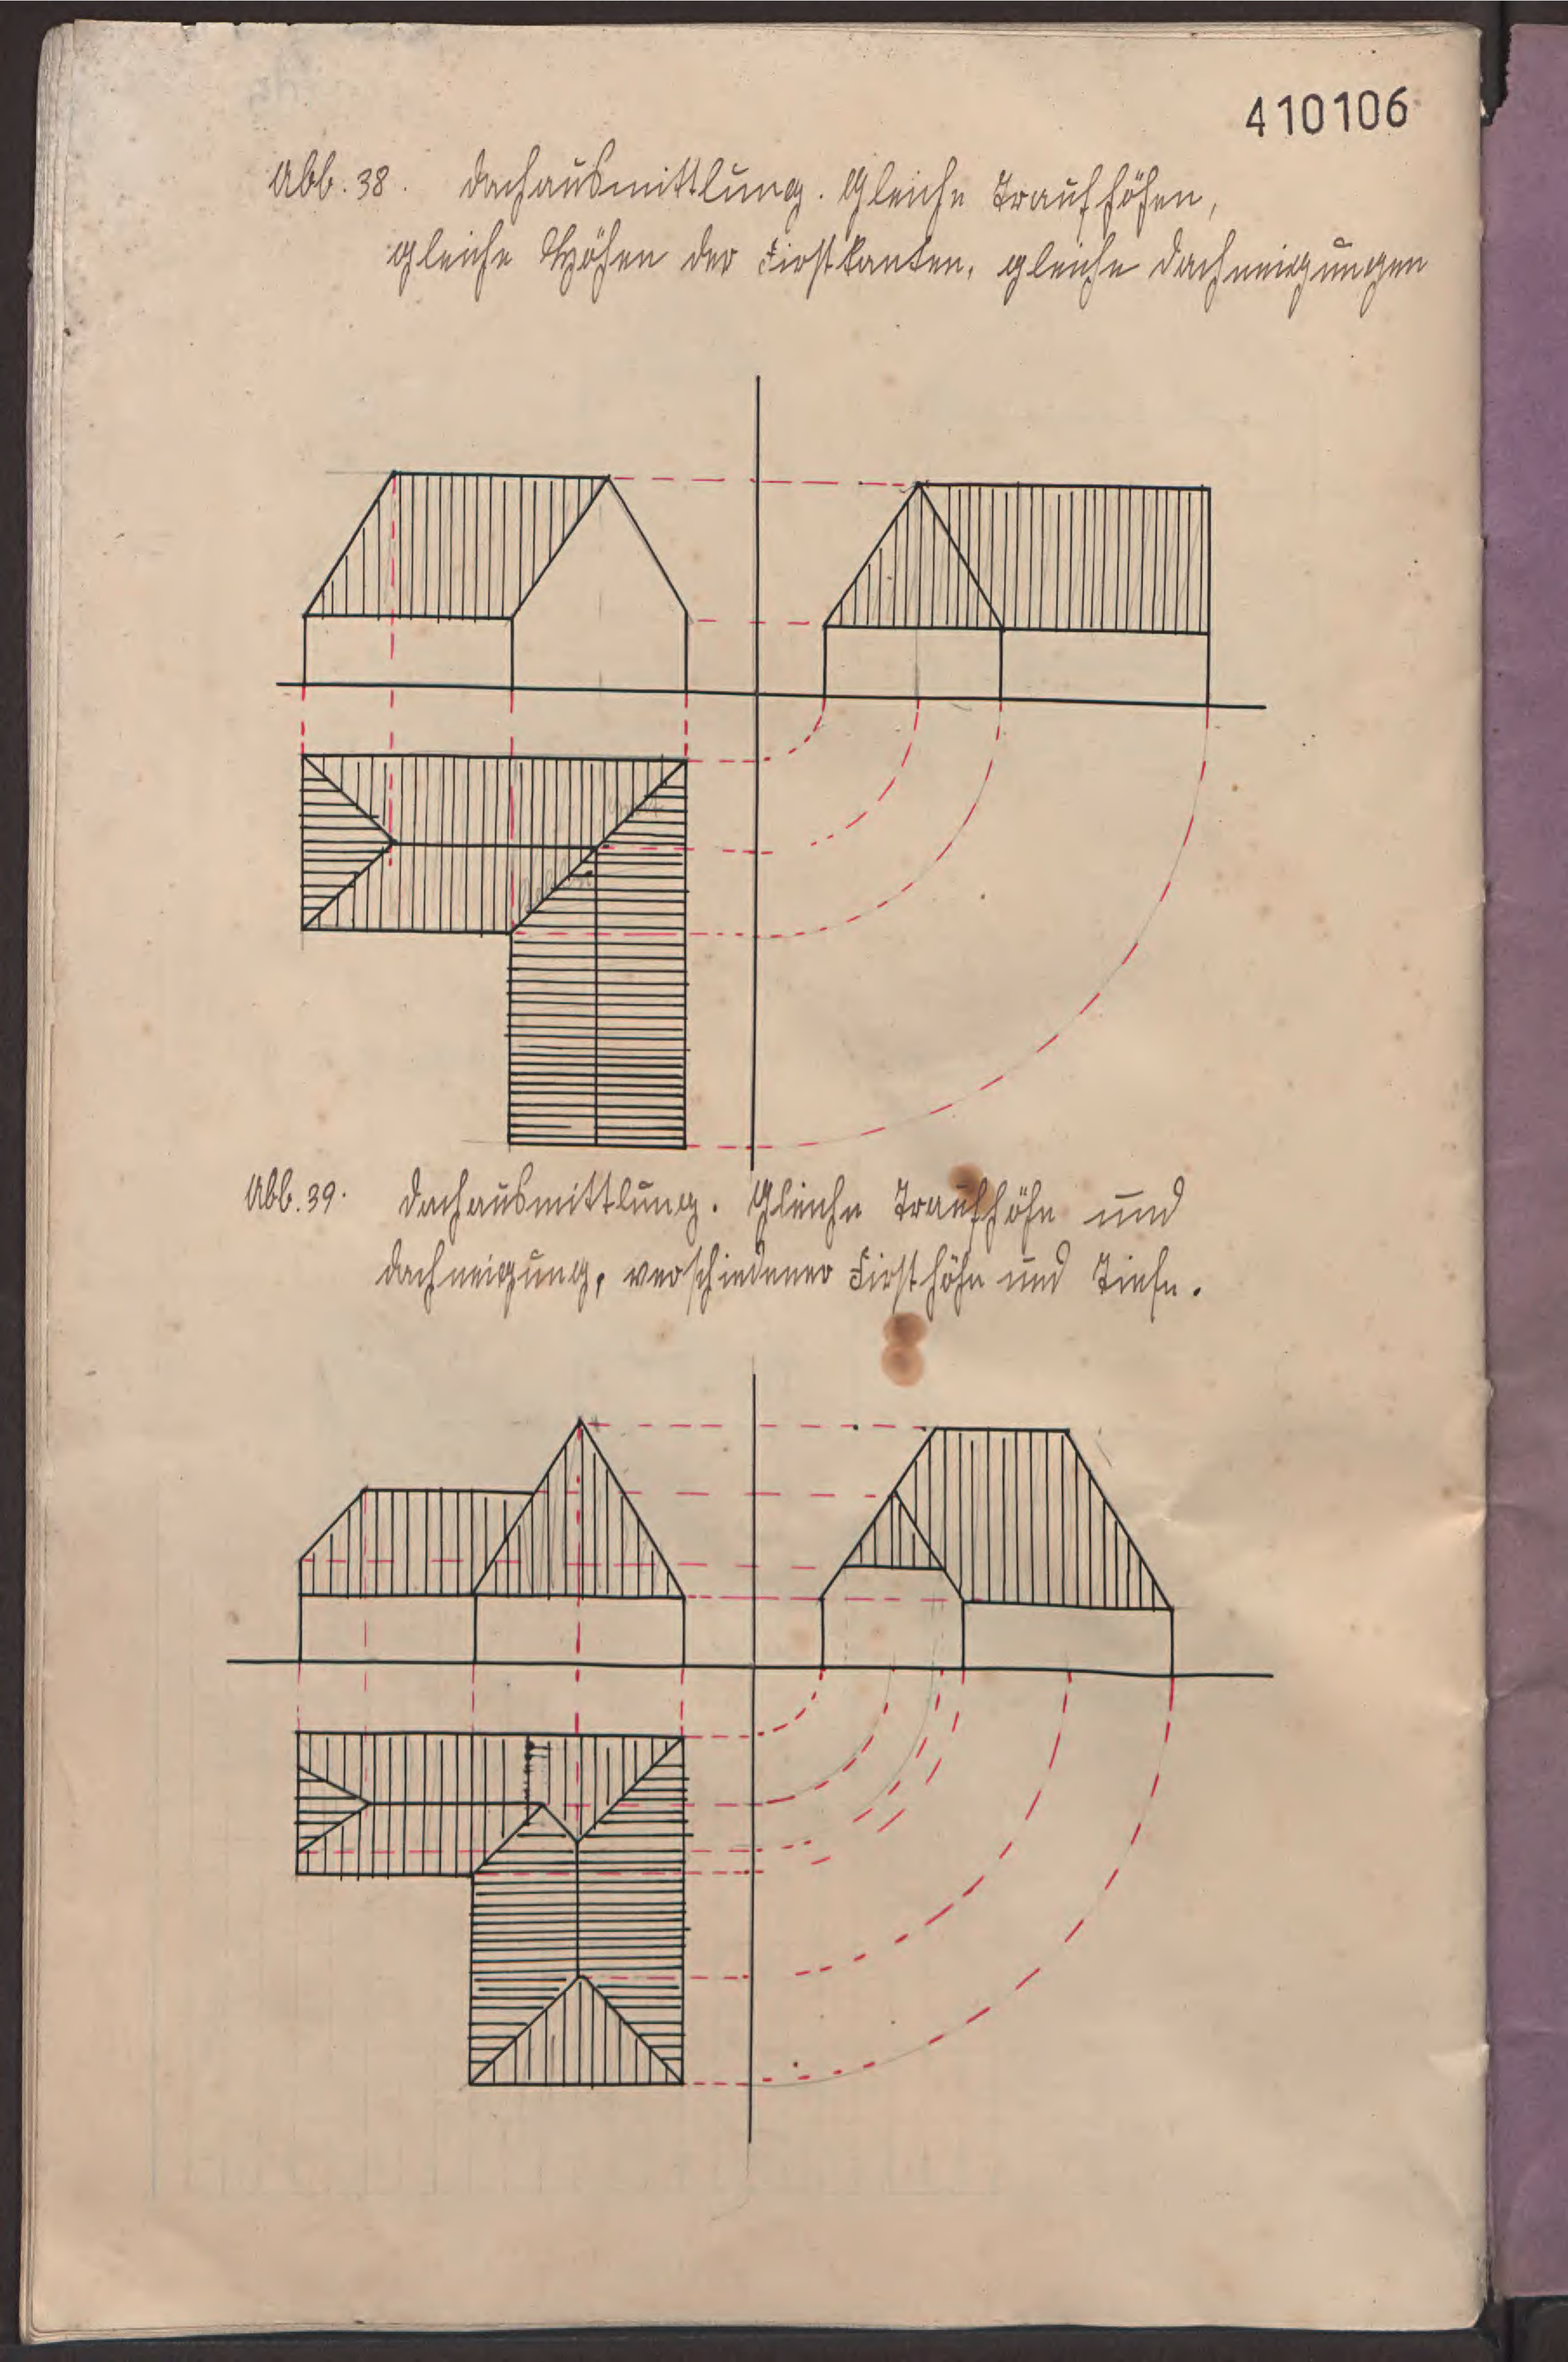 410106
Abb. 38. Dachausmittlung. Gleiche Traufhöhen,
gleiche Höhen der Firstkanten, gleiche Dachneigungen
Abb. 39. Dachausmittlung. Gleiche Traufhöhe und
Dachneigung, verschiedener Firsthöhe und Tiefe.